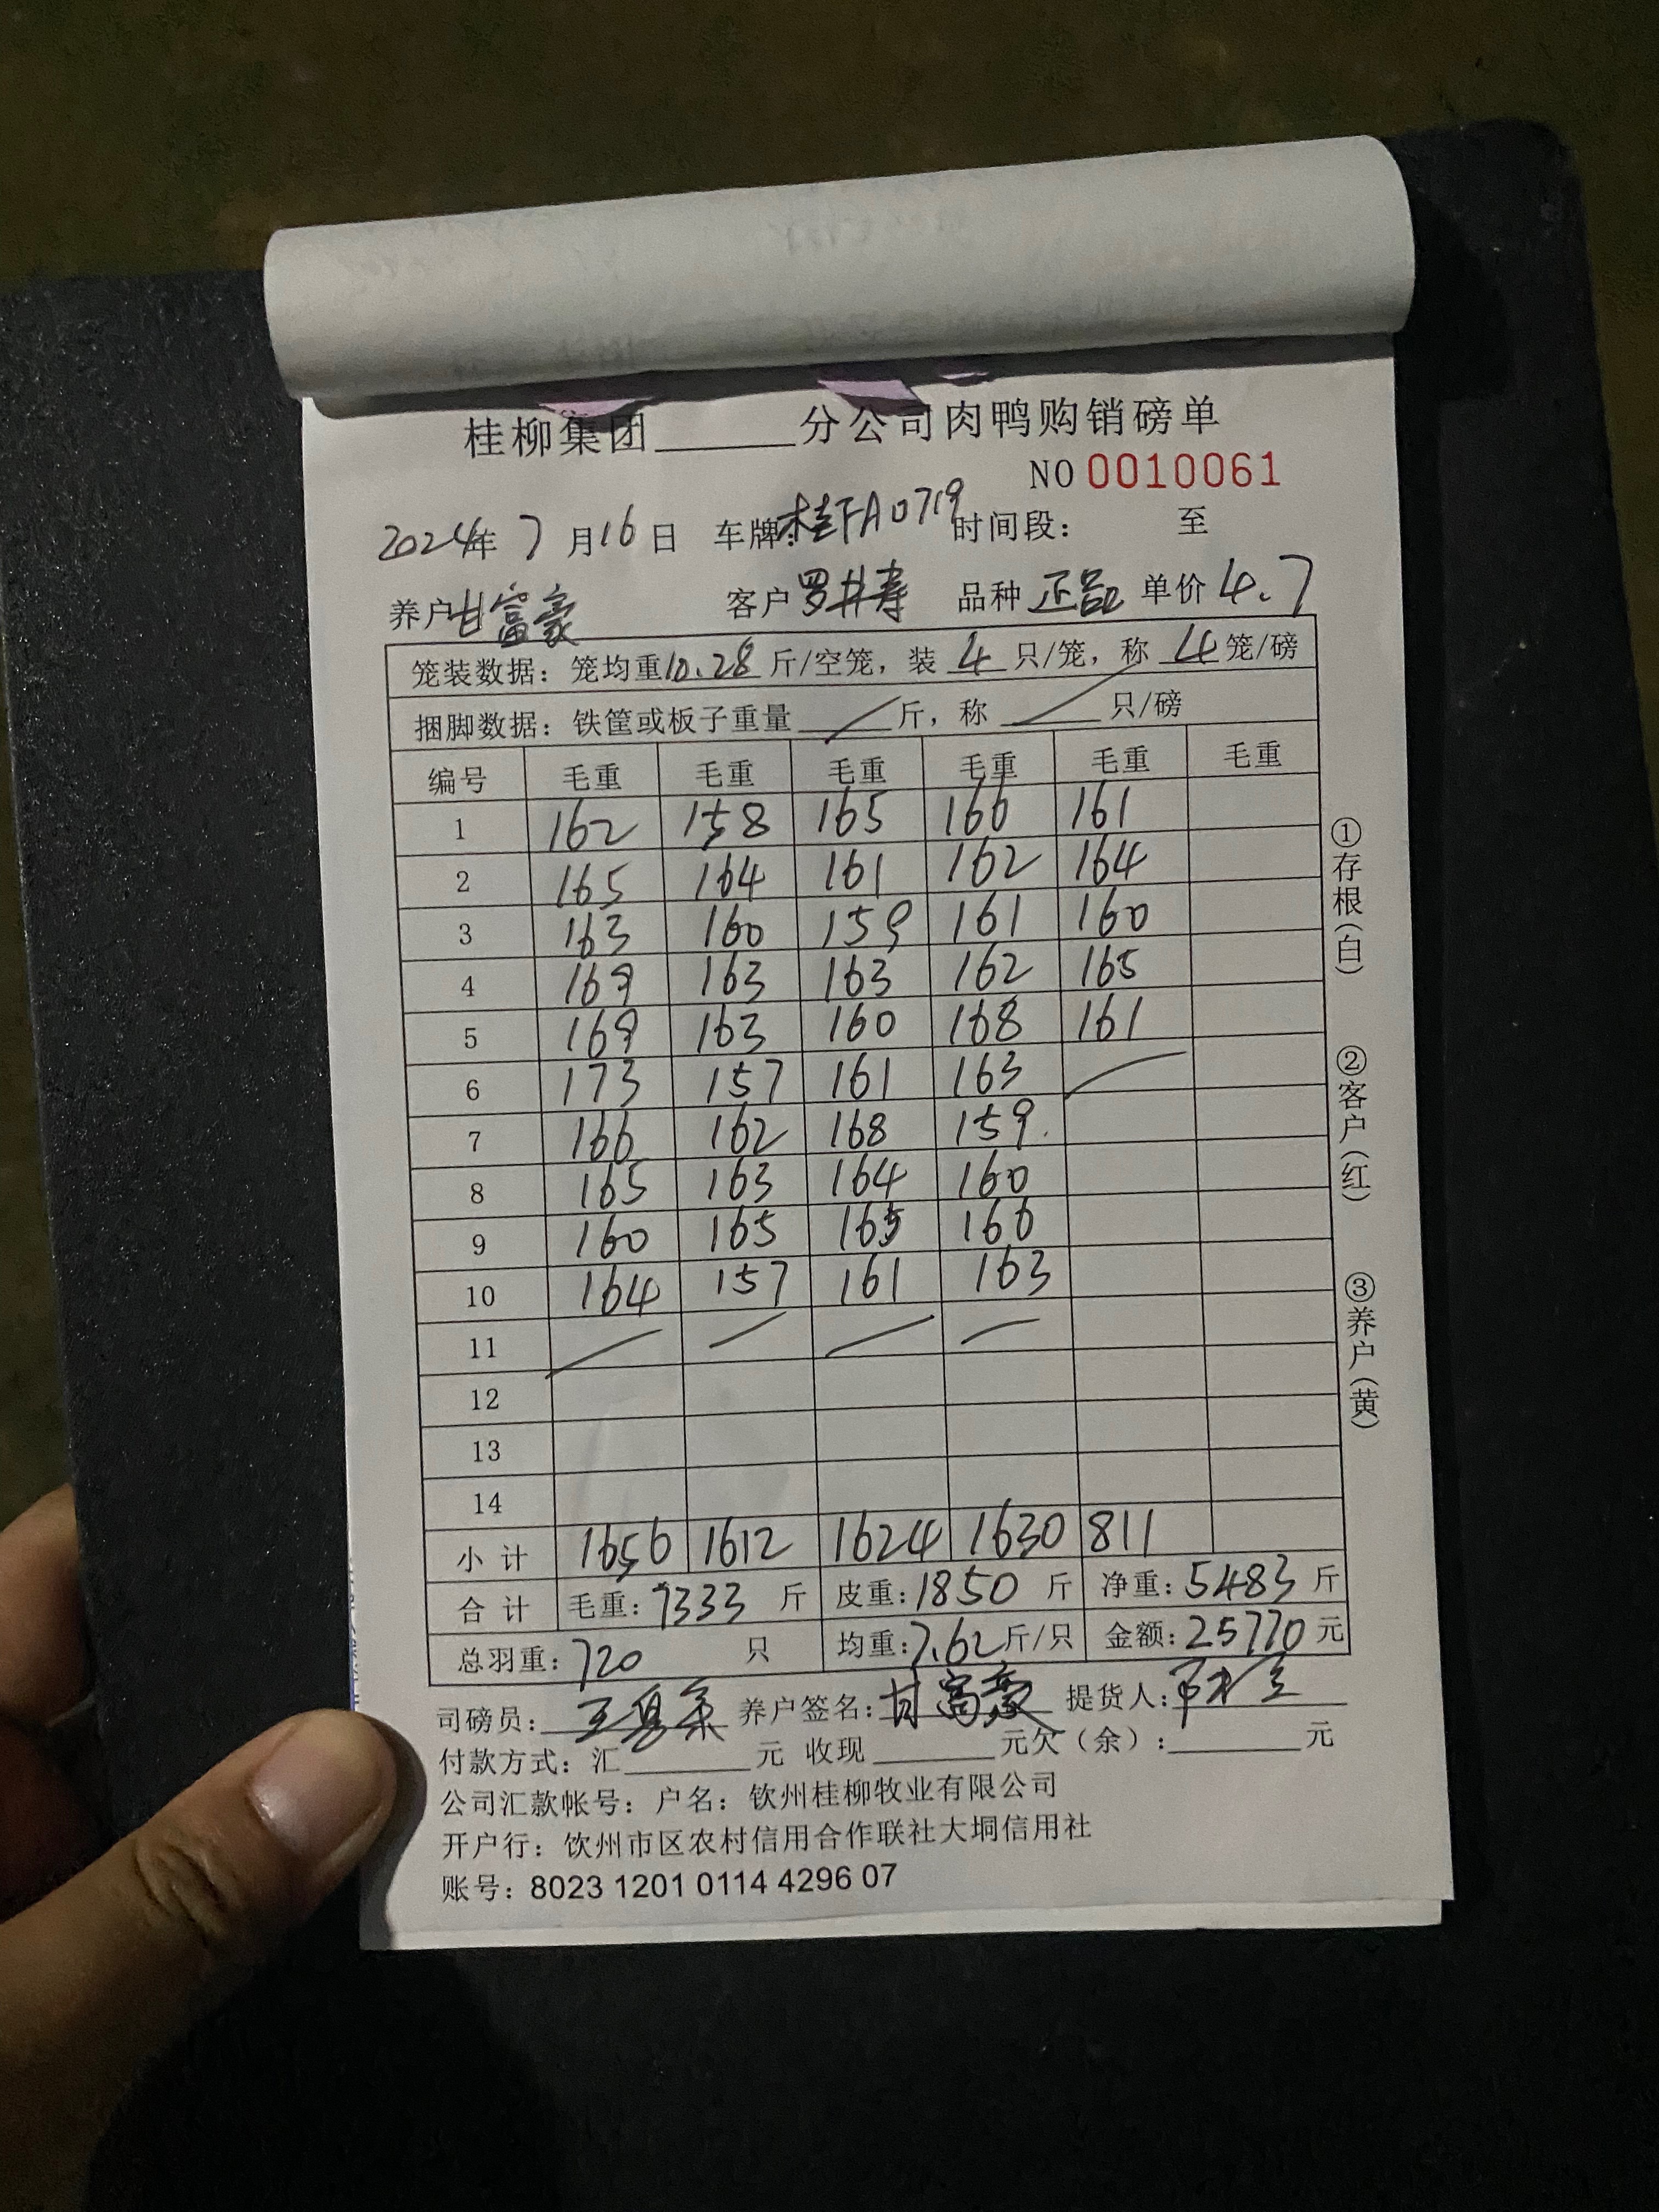 桂柳集团______分公司肉鸭购销磅单
NO 0010061
2024年 7 月 16 日 车牌:桂FA0719 时间段： 至
养户 甘富豪 客户 罗井寿 品种 正品 单价 4.7
笼装数据：笼均重10.28斤/空笼，装 4 只/笼，称 4 笼/磅
捆脚数据：铁筐或板子重量 / 斤，称 / 只/磅
编号 毛重 毛重 毛重 毛重 毛重 毛重
1 162 158 165 166 161
2 165 164 161 162 164
3 163 160 159 161 160
4 169 163 163 162 165
5 169 163 160 168 161
6 173 157 161 163 /
7 166 162 168 159.
8 165 163 164 160
9 160 165 165 166
10 164 157 161 163
11 / / / /
12
13
14
小计 1656 1612 1624 1630 811
合计 毛重：7333 斤 皮重：1850 斤 净重：5483 斤
总羽重：720 只 均重：7.62斤/只 金额：25770元
司磅员： 养户签名：甘富豪 提货人：
付款方式：汇______元 收现______元欠（余）：______元
公司汇款帐号：户名：钦州桂柳牧业有限公司
开户行：饮州市区农村信用合作联社大垌信用社
账号：8023 1201 0114 4296 07
①存根（白）
②客户（红）
③养户（黄）